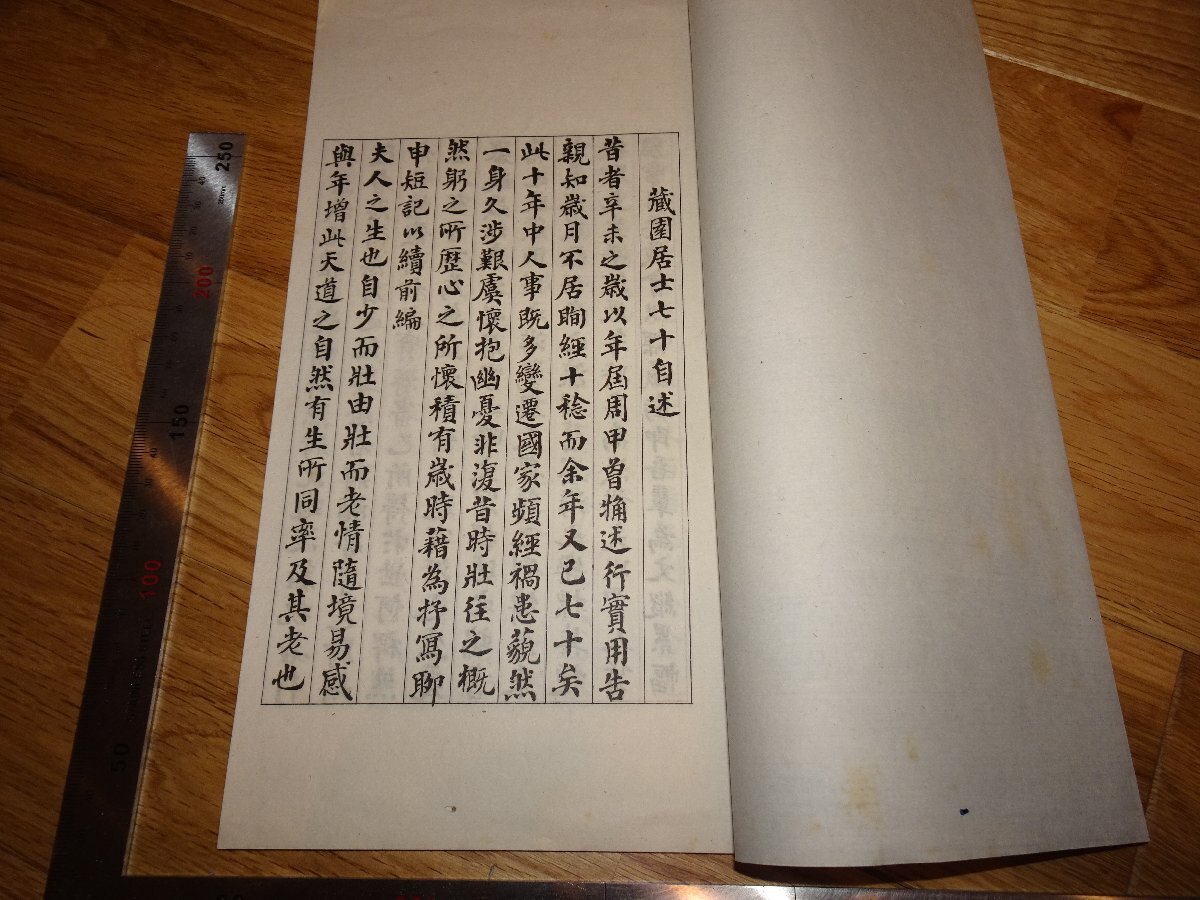 藏園居士七十自述
昔者辛未之歲以年屆周甲曾牖述行實用告
親知歲月不居眴經十稔而余年又已七十矣
此十年中人事既多變遷國家頻經禍患藐然
一身久涉艱虞懷抱幽憂非復昔時壯往之概
然躬之所歷心之所懷積有歲時藉為抒寫聊
申短記以續前編
夫人之生也自少而壯由壯而老情隨境易感
與年增此天道之自然有生所同率及其老也
250
200
150
100
50